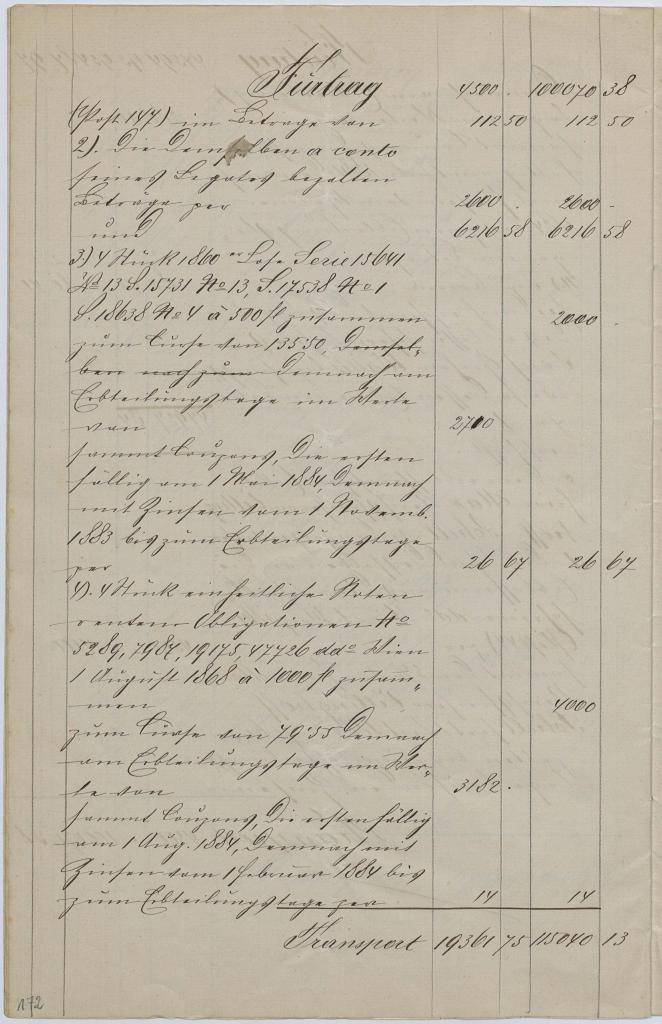 Fürtrag 4500 . 100070 38
(Post 147) im Betrage von 112 50 112 50
2). Die Demselben a conto
seines Legates bezalten
Beträge per 2600 . 2600 .
und 6216 58 6216 58
3) 4 Stück 1860er Lose Serie 15641
No 13 S. 15731 No 13, S. 17538 No 1
S. 18638 No 4 à 500 fl zusammen 2000 .
zum Curse von 135·50, Demsel-
ben nach zum Demnach am
Erbteilungstage im Werte
von 2710
sammt Coupons, Die ersten
fällig am 1 Mai 1884, Demnach
mit Zinsen vom 1 Novemb.
1883 bis zum Erbteilungstage
per 26 67 26 67
4). 4 Stück einheitliche Noten
renten Obligationen No
5289, 7987, 19175, 47726 ddo Wien
1 August 1868 à 1000 fl zusam-
men 4000
zum Curse von 79·55 Demnach
am Erbteilungstage im Wer-
te von 3182 .
sammt Coupons, Die ersten fällig
am 1 Aug. 1884, Demnach mit
Zinsen vom 1 Februar 1884 bis
zum Erbteilungstage per 14 14
Transport 19361 75 115040 13
172